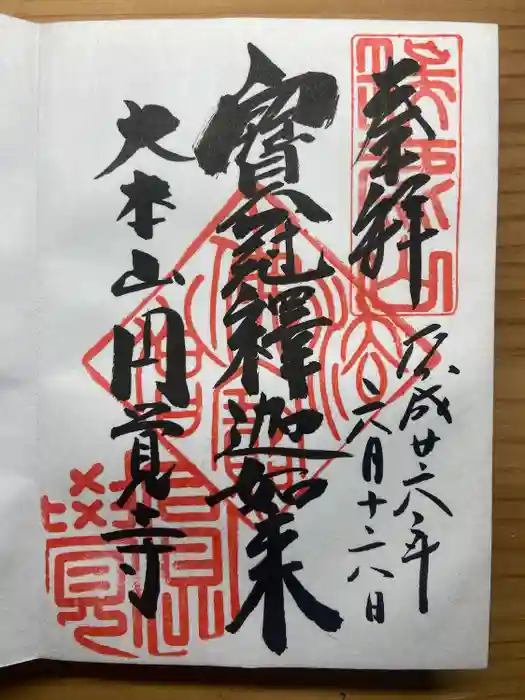 奉拝
平成廿六年
六月十六日
寶冠釋迦如来
大本山円覚寺